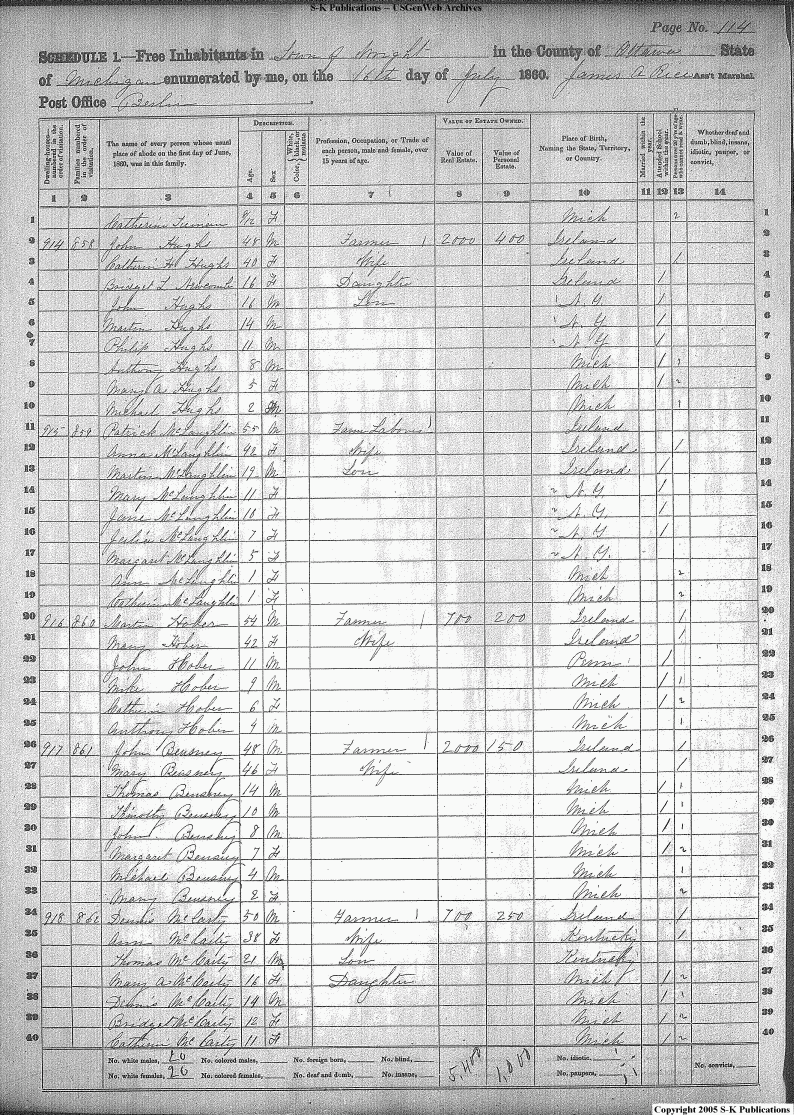 S-K Publications – USGenWeb Archives
Page No. 114
SCHEDULE 1.—Free Inhabitants in Town of Wright in the County of Ottawa State
of Michigan enumerated by me, on the 16th day of July 1860. James A Rice Ass't Marshal
Post Office Berlin
Dwelling-houses numbered in the order of visitation.
Families numbered in the order of visitation.
The name of every person whose usual place of abode on the first day of June, 1860, was in this family.
DESCRIPTION.
Age.
Sex.
Color, White, black, or mulatto.
Profession, Occupation, or Trade of each person, male and female, over 15 years of age.
VALUE OF ESTATE OWNED.
Value of Real Estate.
Value of Personal Estate.
Place of Birth, Naming the State, Territory, or Country.
Married within the year.
Attended School within the year.
Persons over 20 y'rs of age who cannot read & write.
Whether deaf and dumb, blind, insane, idiotic, pauper, or convict.
1 2 3 4 5 6 7 8 9 10 11 12 13 14
1 Catherine 9/12 F Mich 2 1
2 914 858 John Hughs 48 M Farmer 1 2000 400 Ireland 2
3 Catherin H Hughs 40 F Wife Ireland 1 3
4 Bridget L Newcomb 16 F Daughter Ireland 1 4
5 John Hughs 16 M Son N.Y. 1 5
6 Martin Hughs 14 M N.Y. 1 6
7 Philip Hughs 11 M N.Y. 1 7
8 Anthony Hughs 8 M Mich 1 1 8
9 Mary A Hughs 5 F Mich 1 2 9
10 Michael Hughs 2 M Mich 1 10
11 915 859 Patrick McLaughlin 55 M Farm Labour 1 Ireland 11
12 Anna McLaughlin 42 F Wife Ireland 1 12
13 Martin McLaughlin 19 M Son Ireland 1 13
14 Mary McLaughlin 11 F N.Y. 1 14
15 Jane McLaughlin 10 F N.Y. 1 15
16 McLaughlin 7 F N.Y. 1 16
17 Margaret McLaughlin 5 F N.Y. 17
18 Ann McLaughlin 1 F Mich 2 18
19 Catherin McLaughlin 1 F Mich 2 19
20 916 860 Martin Hober 54 M Farmer 1 700 200 Ireland 1 20
21 Mary Hober 42 F Wife Ireland 1 21
22 John Hober 11 M Penn 1 22
23 Mike Hober 9 M Mich 1 1 23
24 Catherin Hober 6 F Mich 1 2 24
25 Anthony Hober 4 M Mich 1 25
26 917 861 John Beusney 48 M Farmer 1 2000 150 Ireland 1 26
27 Mary Beusney 46 F Wife Ireland 1 27
28 Thomas Beusney 14 M Mich 1 1 28
29 Timothy Beusney 10 M Mich 1 1 29
30 John Beusney 8 M Mich 1 1 30
31 Margaret Beusney 7 F Mich 1 2 31
32 Michael Beusney 4 M Mich 1 32
33 Mary Beusney 2 F Mich 2 33
34 918 862 Dennis McCarty 50 M Farmer 1 700 250 Ireland 1 34
35 Ann McCarty 38 F Wife Kentucky 1 35
36 Thomas McCarty 21 M Son Kentucky 36
37 Mary A McCarty 16 F Daughter Mich 1 2 37
38 Dennis McCarty 14 M Mich 1 1 38
39 Bridget McCarty 12 F Mich 1 2 39
40 Catherin McCarty 11 F Mich 1 2 40
No. white males, 20 No. colored males, No. foreign born, No. blind, 5,400 1,000 No. idiotic, No. convicts,
No. white females, 20 No. colored females, No. deaf and dumb, No. insane, No. paupers,
Copyright 2005 S-K Publications